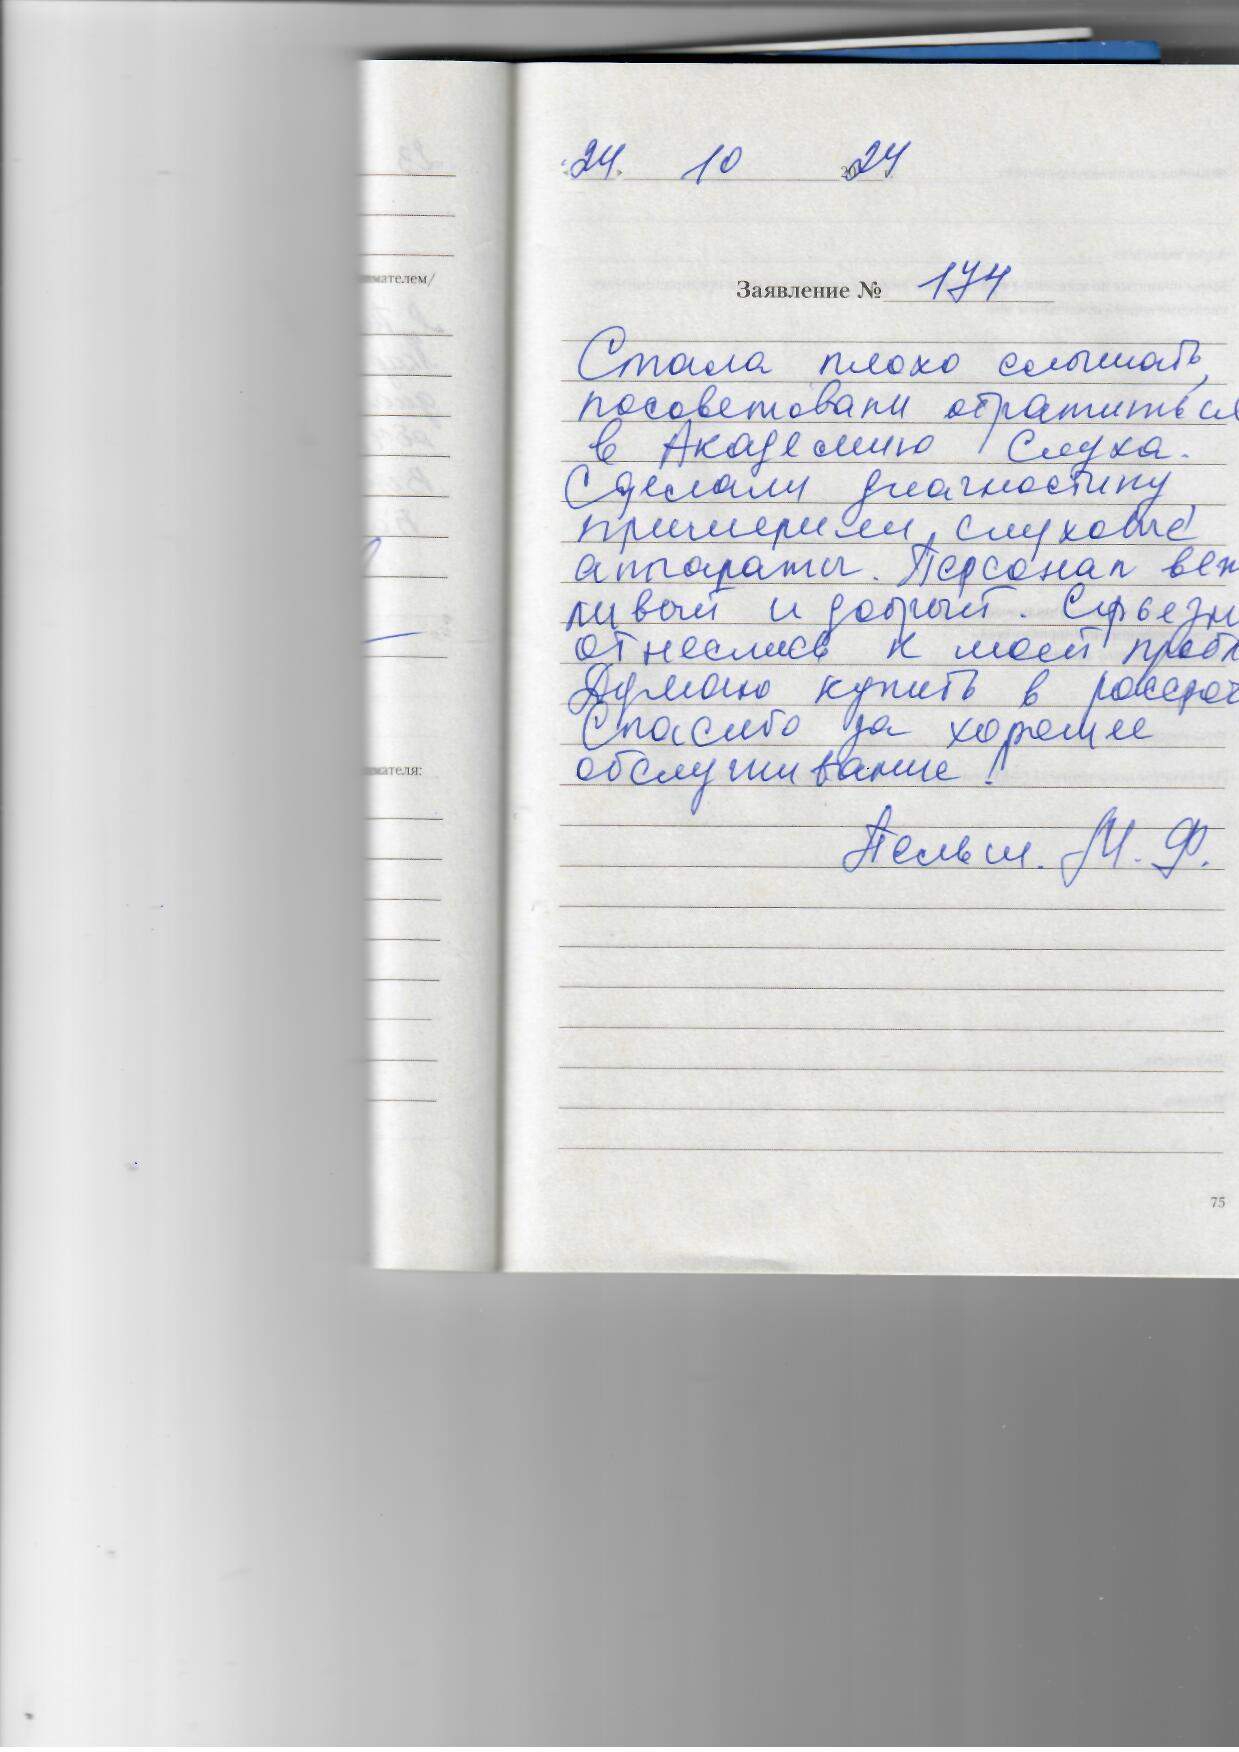 «24» 10 2024 г.
Заявление № 174
Стала плохо слышать,
посоветовали обратиться
в Академию Слуха.
Сделали диагностику
примерили слуховые
аппараты. Персонал веж
ливый и добрый. Серьезн
отнеслись к моей пробл
Думаю купить в рассроч
Спасибо за хорошее
обслуживание!
М. Ф.
имателем/
имателя:
75